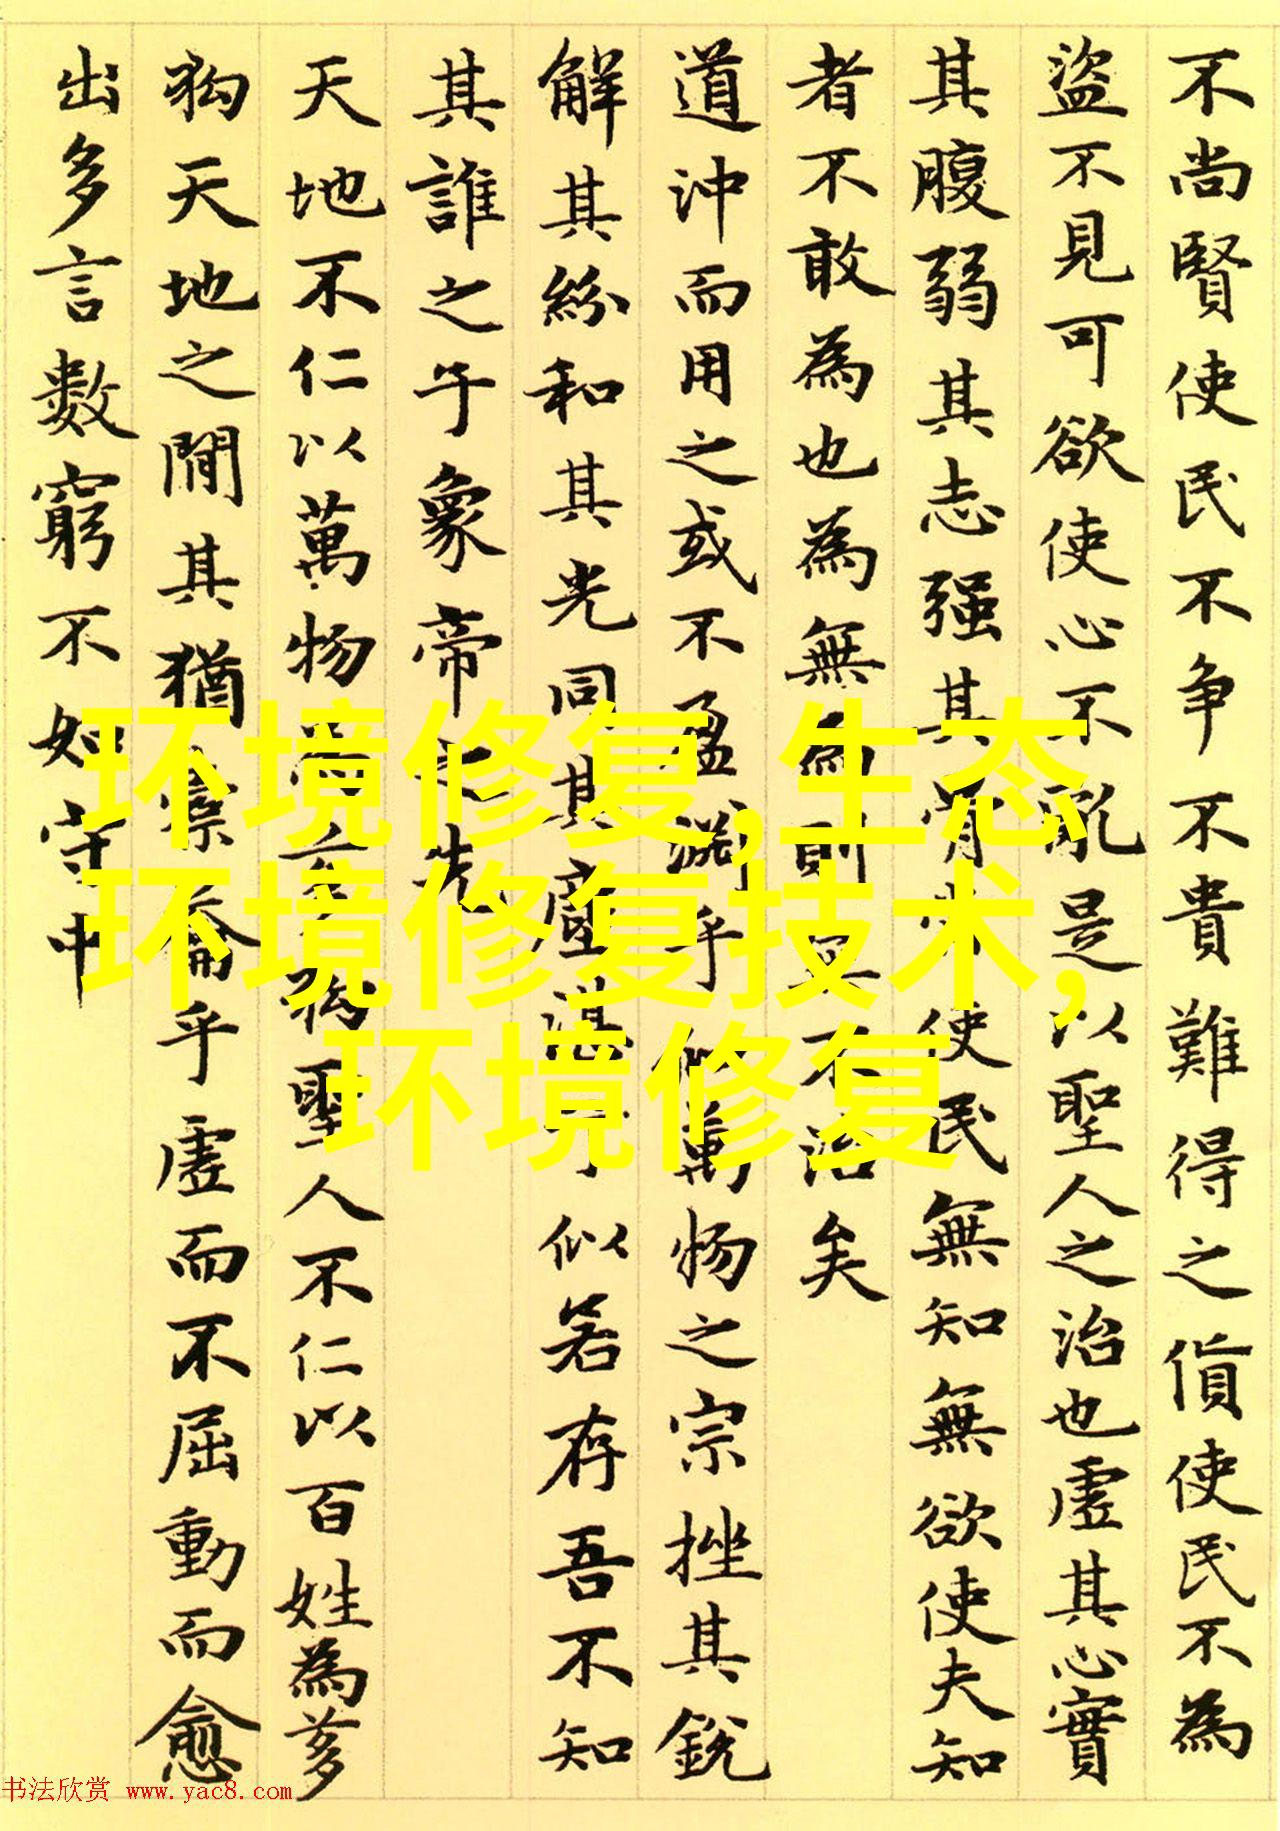 不尚賢使民不争不貴難得之貨使民不為
盜不見可欲使心不亂是以聖人之治也虛其心實
其腹弱其志强其骨常使民無知無欲使夫知
者不敢為也為無為則無不治矣
道沖而用之或不盈淵乎似萬物之宗挫其銳
解其紛和其光同其塵湛兮似若存吾不知
其誰之子象帝之先
天地不仁以萬物為芻狗聖人不仁以百姓為芻
狗天地之間其猶橐籥乎虛而不屈動而愈
出多言數窮不如守中
环境修复,生态
环境修复技术,
环境修复
书法欣赏 www.yac8.com